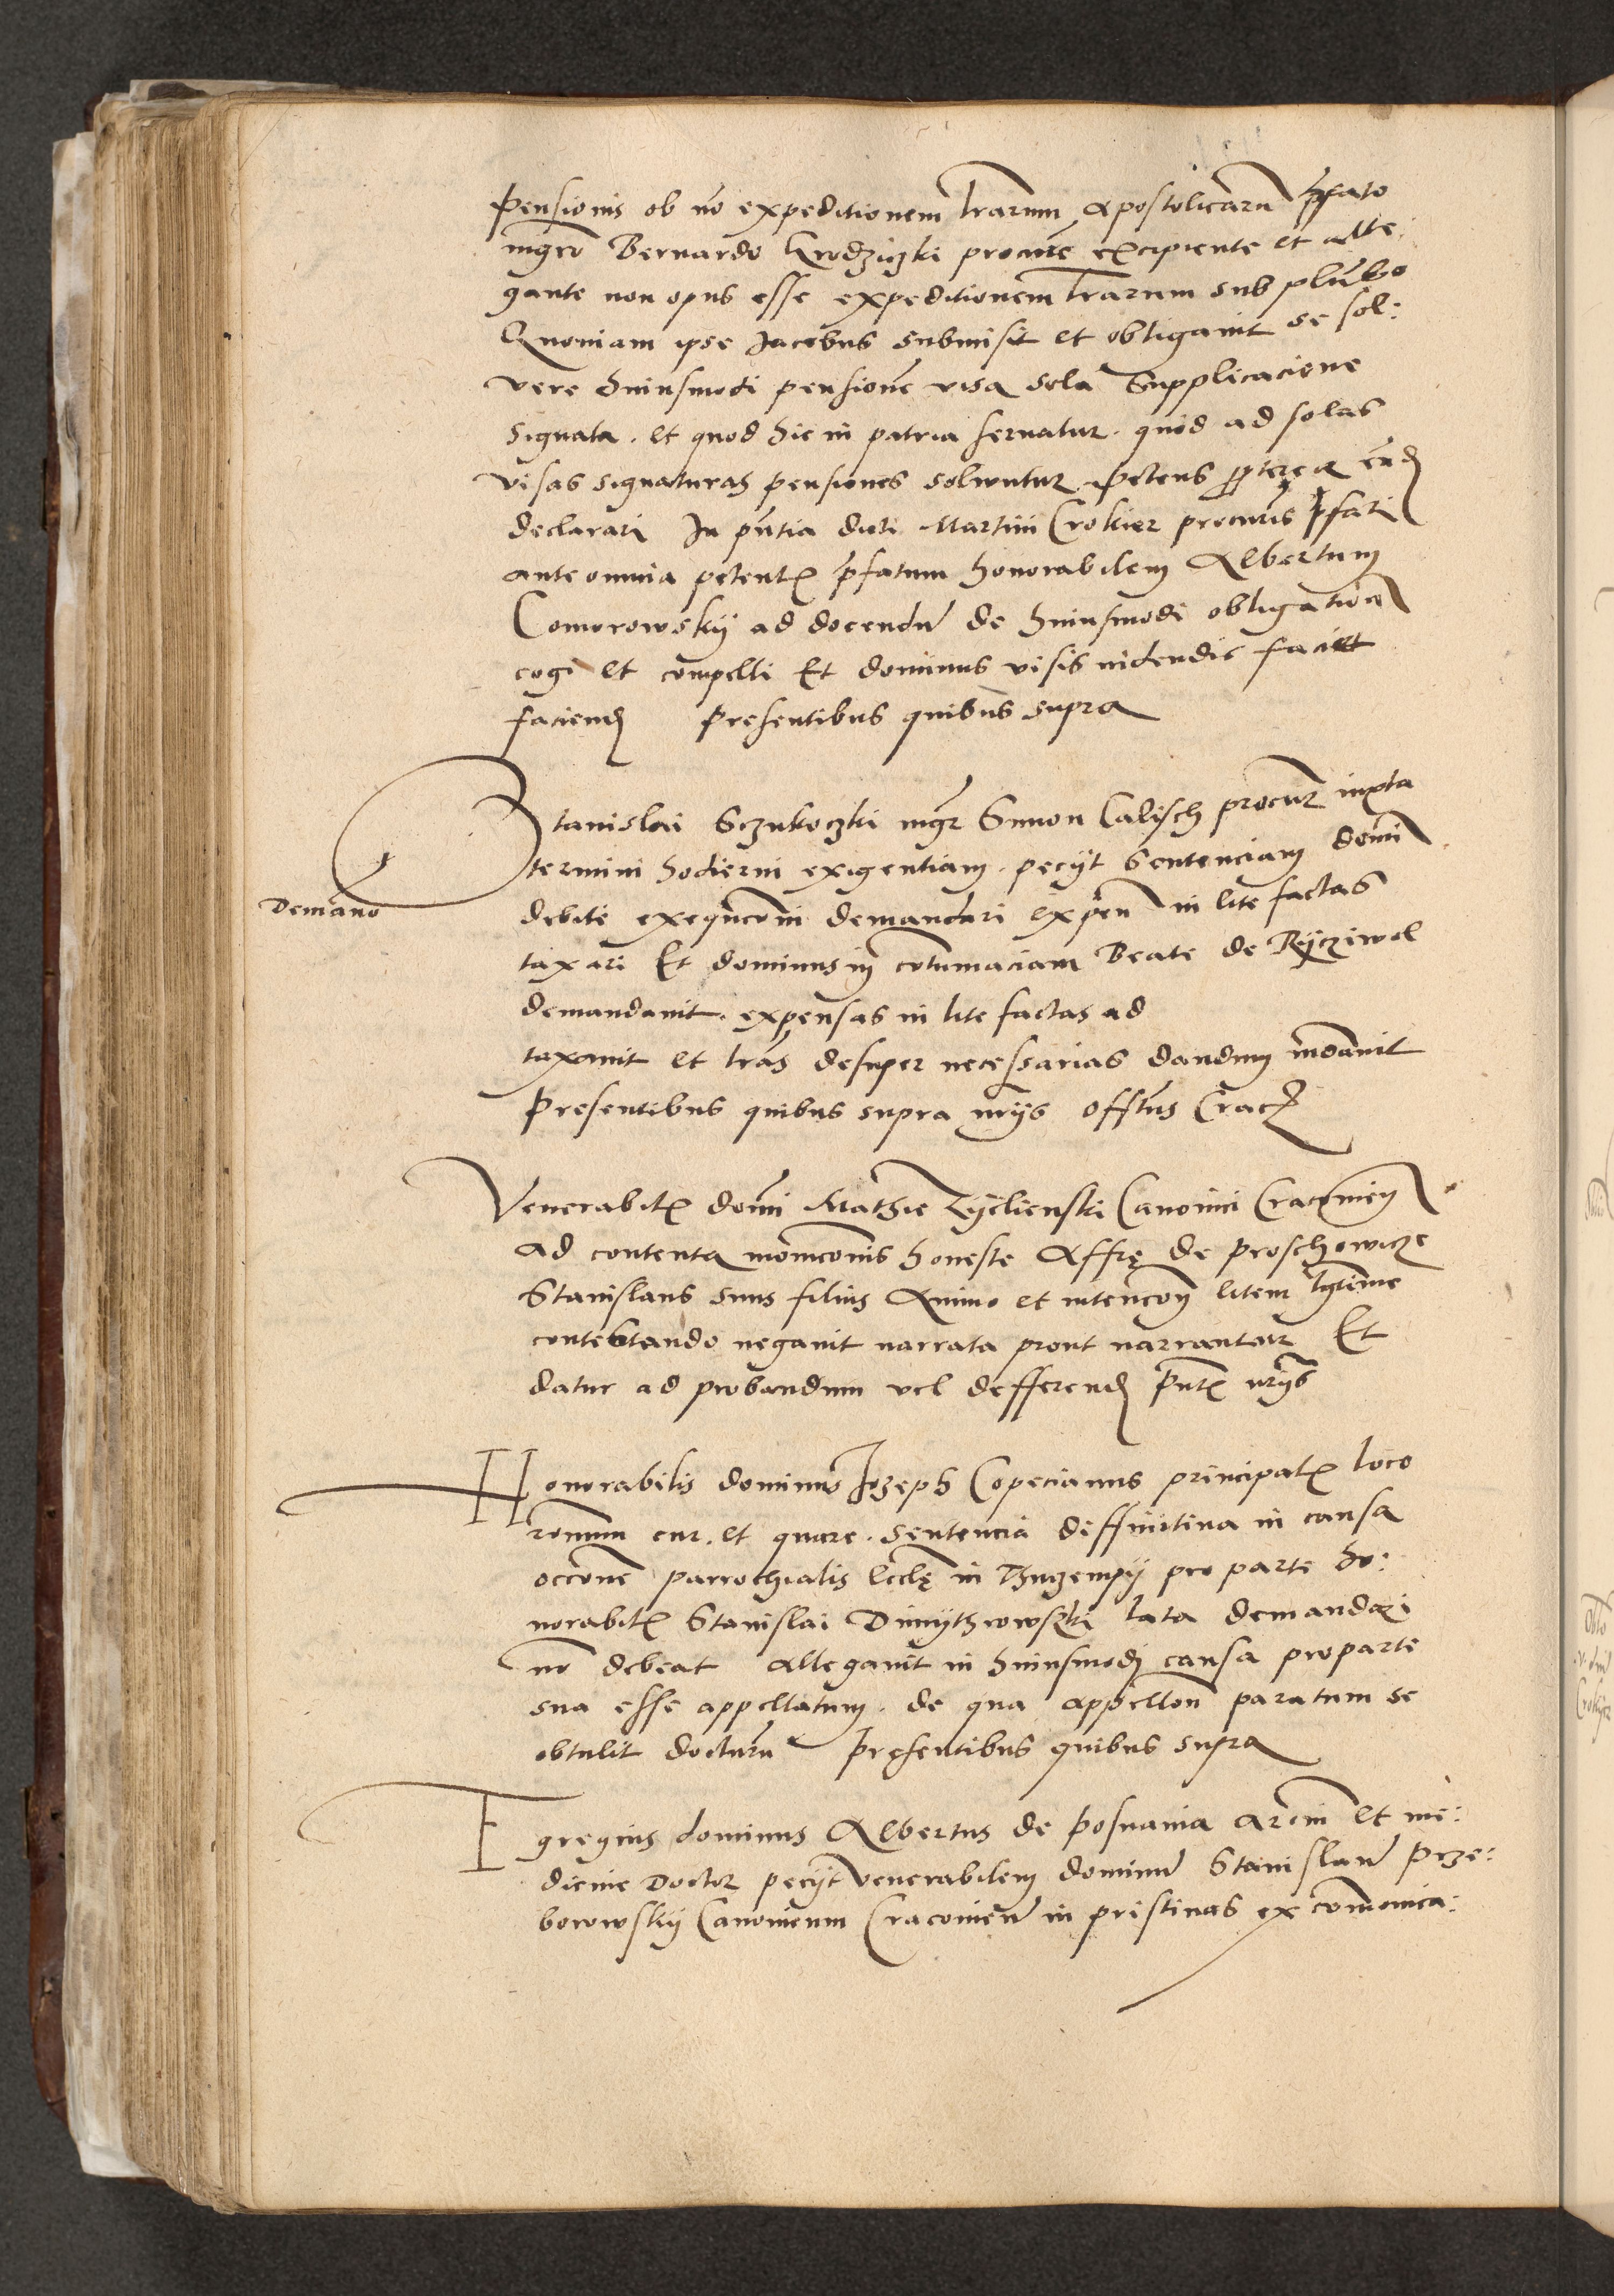 Pensionis ob nõ expeditionem lrarum apostolicarũ p̃fato
mgrõ Bernardo Grodziczki procurẽ excipiente et alle
gante non opus esse expeditionem lrarum sub plũbo
Quoniam ipse Jacobus submisit et obligauit se sol:
vere huiusmodi pensionẽ visa sola Supplicacione
signata . et quod hic in patria seruatur . quod ad solas
visas signaturas pensiones soluuntur . petens p̱terea
declarari In pñtia dicti Martini Crokier procuris p̃fati
ante omnia petentis p̃fatum honorabilem Albertum
Comorowskÿ ad docendũ de huiusmodi obligatiõe
cogi et compelli Et dominus visis videndis faciet
faciend Presentibus quibus supra
Stanislai Sczukoczki mgr̃ Simon Calisch procur̃ iuxta
termini hodierni exigentiam . peciÿt Sentenciam domĩ
Demãno
debitẽ exequcõni demandari expen̄ in lite factas
taxari Et dominus in cõtumaciam Beate de Rÿcziwol
demandauit . expensas in lite factas ad
taxauit et lras desuper necessarias dandum mdauit
Presentibus quibus supra nrÿs offtus Crac̄
Venerabilis domĩ Mathie Zÿelienski Canonici Cracouien̄
ad contenta monicõnis honeste Affrę de Proschowicze
Stanislaus suus filius Animo et intencõn̄ litem lgtime
contestando negauit narrata prout narrantur Et
datur ad probandum vel defferend̄ p̃ntis nrÿs
Honorabilis dominus Jozeph Copecianus principalis loco
ronum cur . et quare . Sentencia diffinitiua in causa
occõne parrochialis Ecclę in pro parte ho:
norabilis Stanislai Dmÿthrowszki lata demandari
nõ debeat Allegauit in huiusmodi causa pro parte
sua esse appellatum . de qua appellon̄ paratum se
obtulit docturũ Presentibus quibus supra
Egregius dominus Albertus de Posnania arcium et me:
dicine Doctor peciÿt venerabilem dominũ Stanislaũ Prze:
borowskÿ Canonicum Cracouien̄ in pristinas excomonica: